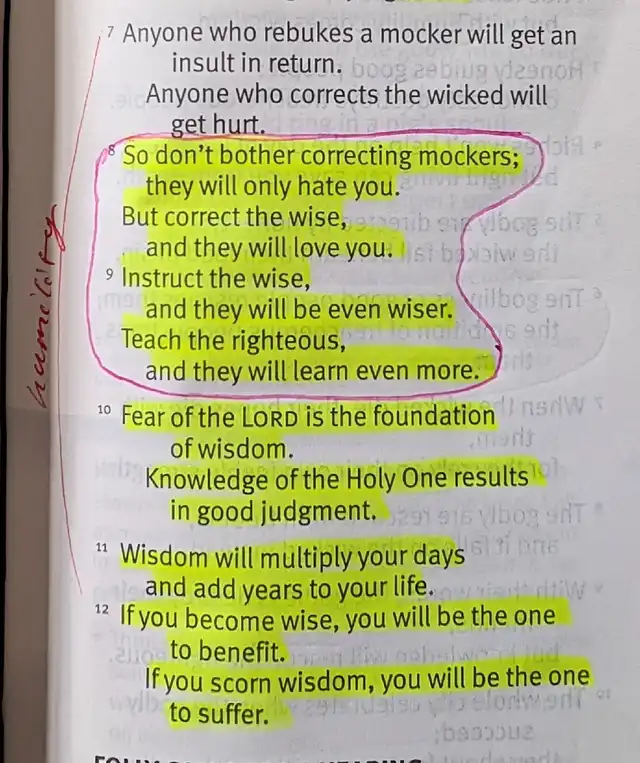 7 Anyone who rebukes a mocker will get an
insult in return.
Anyone who corrects the wicked will
get hurt.
8 So don't bother correcting mockers;
they will only hate you.
But correct the wise,
and they will love you.
9 Instruct the wise,
and they will be even wiser.
Teach the righteous,
and they will learn even more.
10 Fear of the LORD is the foundation
of wisdom.
Knowledge of the Holy One results
in good judgment.
11 Wisdom will multiply your days
and add years to your life.
12 If you become wise, you will be the one
to benefit.
If you scorn wisdom, you will be the one
to suffer.
humility